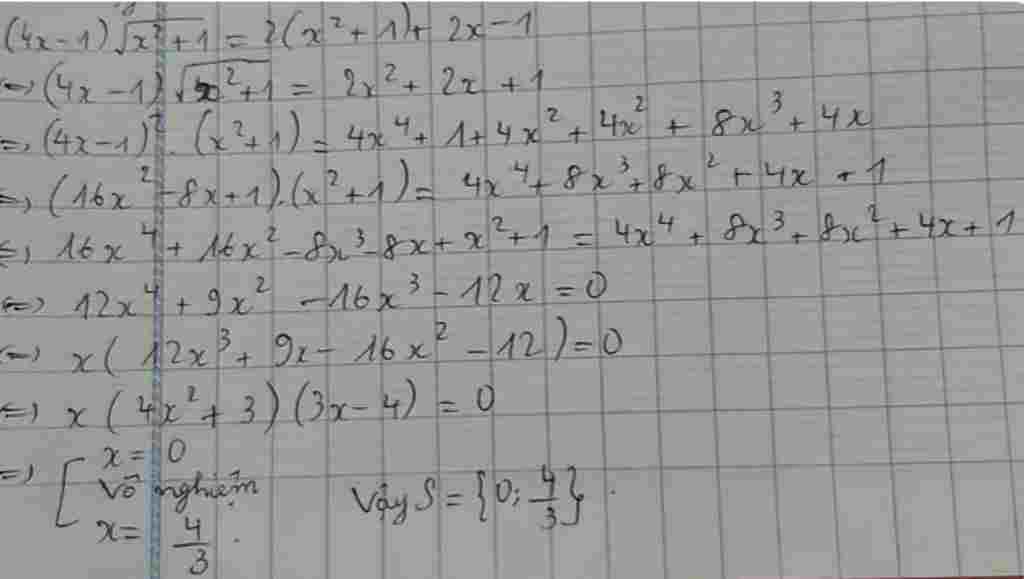 (4x-1)√(x²+1) = 2(x²+1)+ 2x-1
⇔) (4x-1)√(x²+1) = 2x²+ 2x+1
=) (4x-1)².(x²+1) = 4x⁴+1+4x²+4x²+ 8x³+4x
⇔) (16x²-8x+1).(x²+1) = 4x⁴+8x³+8x²+4x+1
⇔) 16x⁴+16x²-8x³-8x+x²+1 = 4x⁴+8x³+8x²+4x+1
⇔) 12x⁴+9x² -16x³-12x=0
⇔) x(12x³+9x-16x²-12)=0
⇔) x(4x²+3)(3x-4)=0
=) [ x=0
Vô nghiệm Vậy S={0; 4/3}.
x= 4/3.